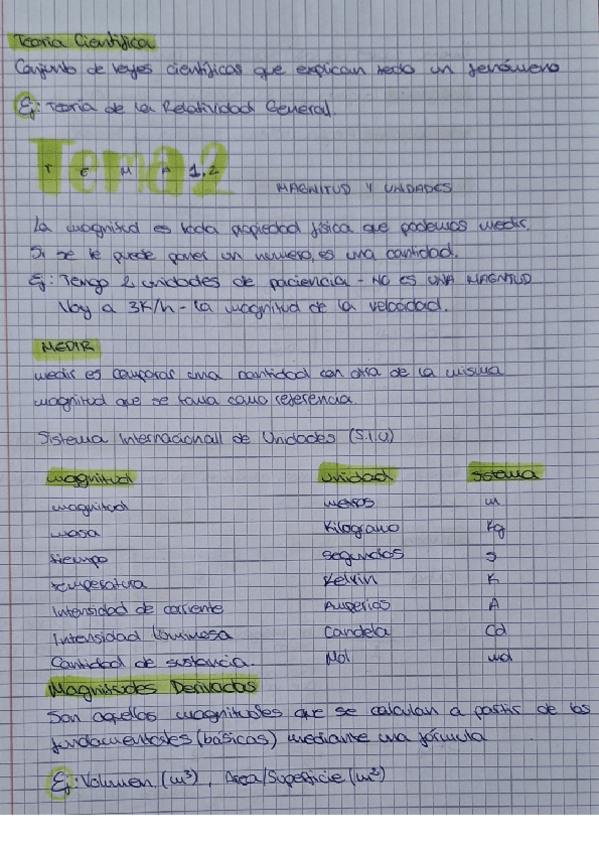 Teoría Científica
Conjunto de leyes científicas que explican todo un fenómeno
Ej: Teoría de la Relatividad General.
Tema 2
T E M A 1.2
MAGNITUD Y UNIDADES
La magnitud es toda propiedad física que podemos medir.
Si se le puede poner un numero, es una cantidad.
Ej: Tengo 2 unidades de paciencia - NO ES UNA MAGNITUD
Voy a 3K/h - la magnitud de la velocidad.
MEDIR
medir es comparar una cantidad con otra de la misma
magnitud que se toma como referencia
Sistema Internacionall de Unidades (S.I.U)
magnitud unidad sistema
magnitud metros m
masa Kilogramo Kg
tiempo segundos s
temperatura Kelvin K
Intensidad de corriente Amperios A
Intensidad luminosa Candela Cd
Cantidad de sustancia. Mol mol
Magnitudes Derivadas
Son aquellas magnitudes que se calculan a partir de las
fundamentales (básicas) mediante una fórmula
Ej: Volumen (m³), Area/Superficie (m²)